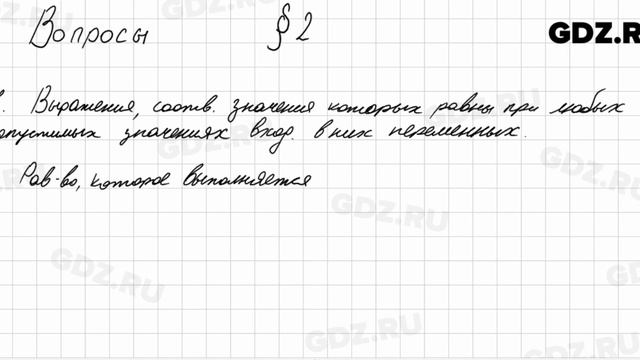 Вопросы § 2
GDZ.R
. Выражения, соотв. значения которых равны при любых
опустимых значениях вход. в них переменных.
Рав-во, которое выполняется
GDZ.RU
GDZ.RU
GDZ.RU
GDZ.RU
GDZ.RU